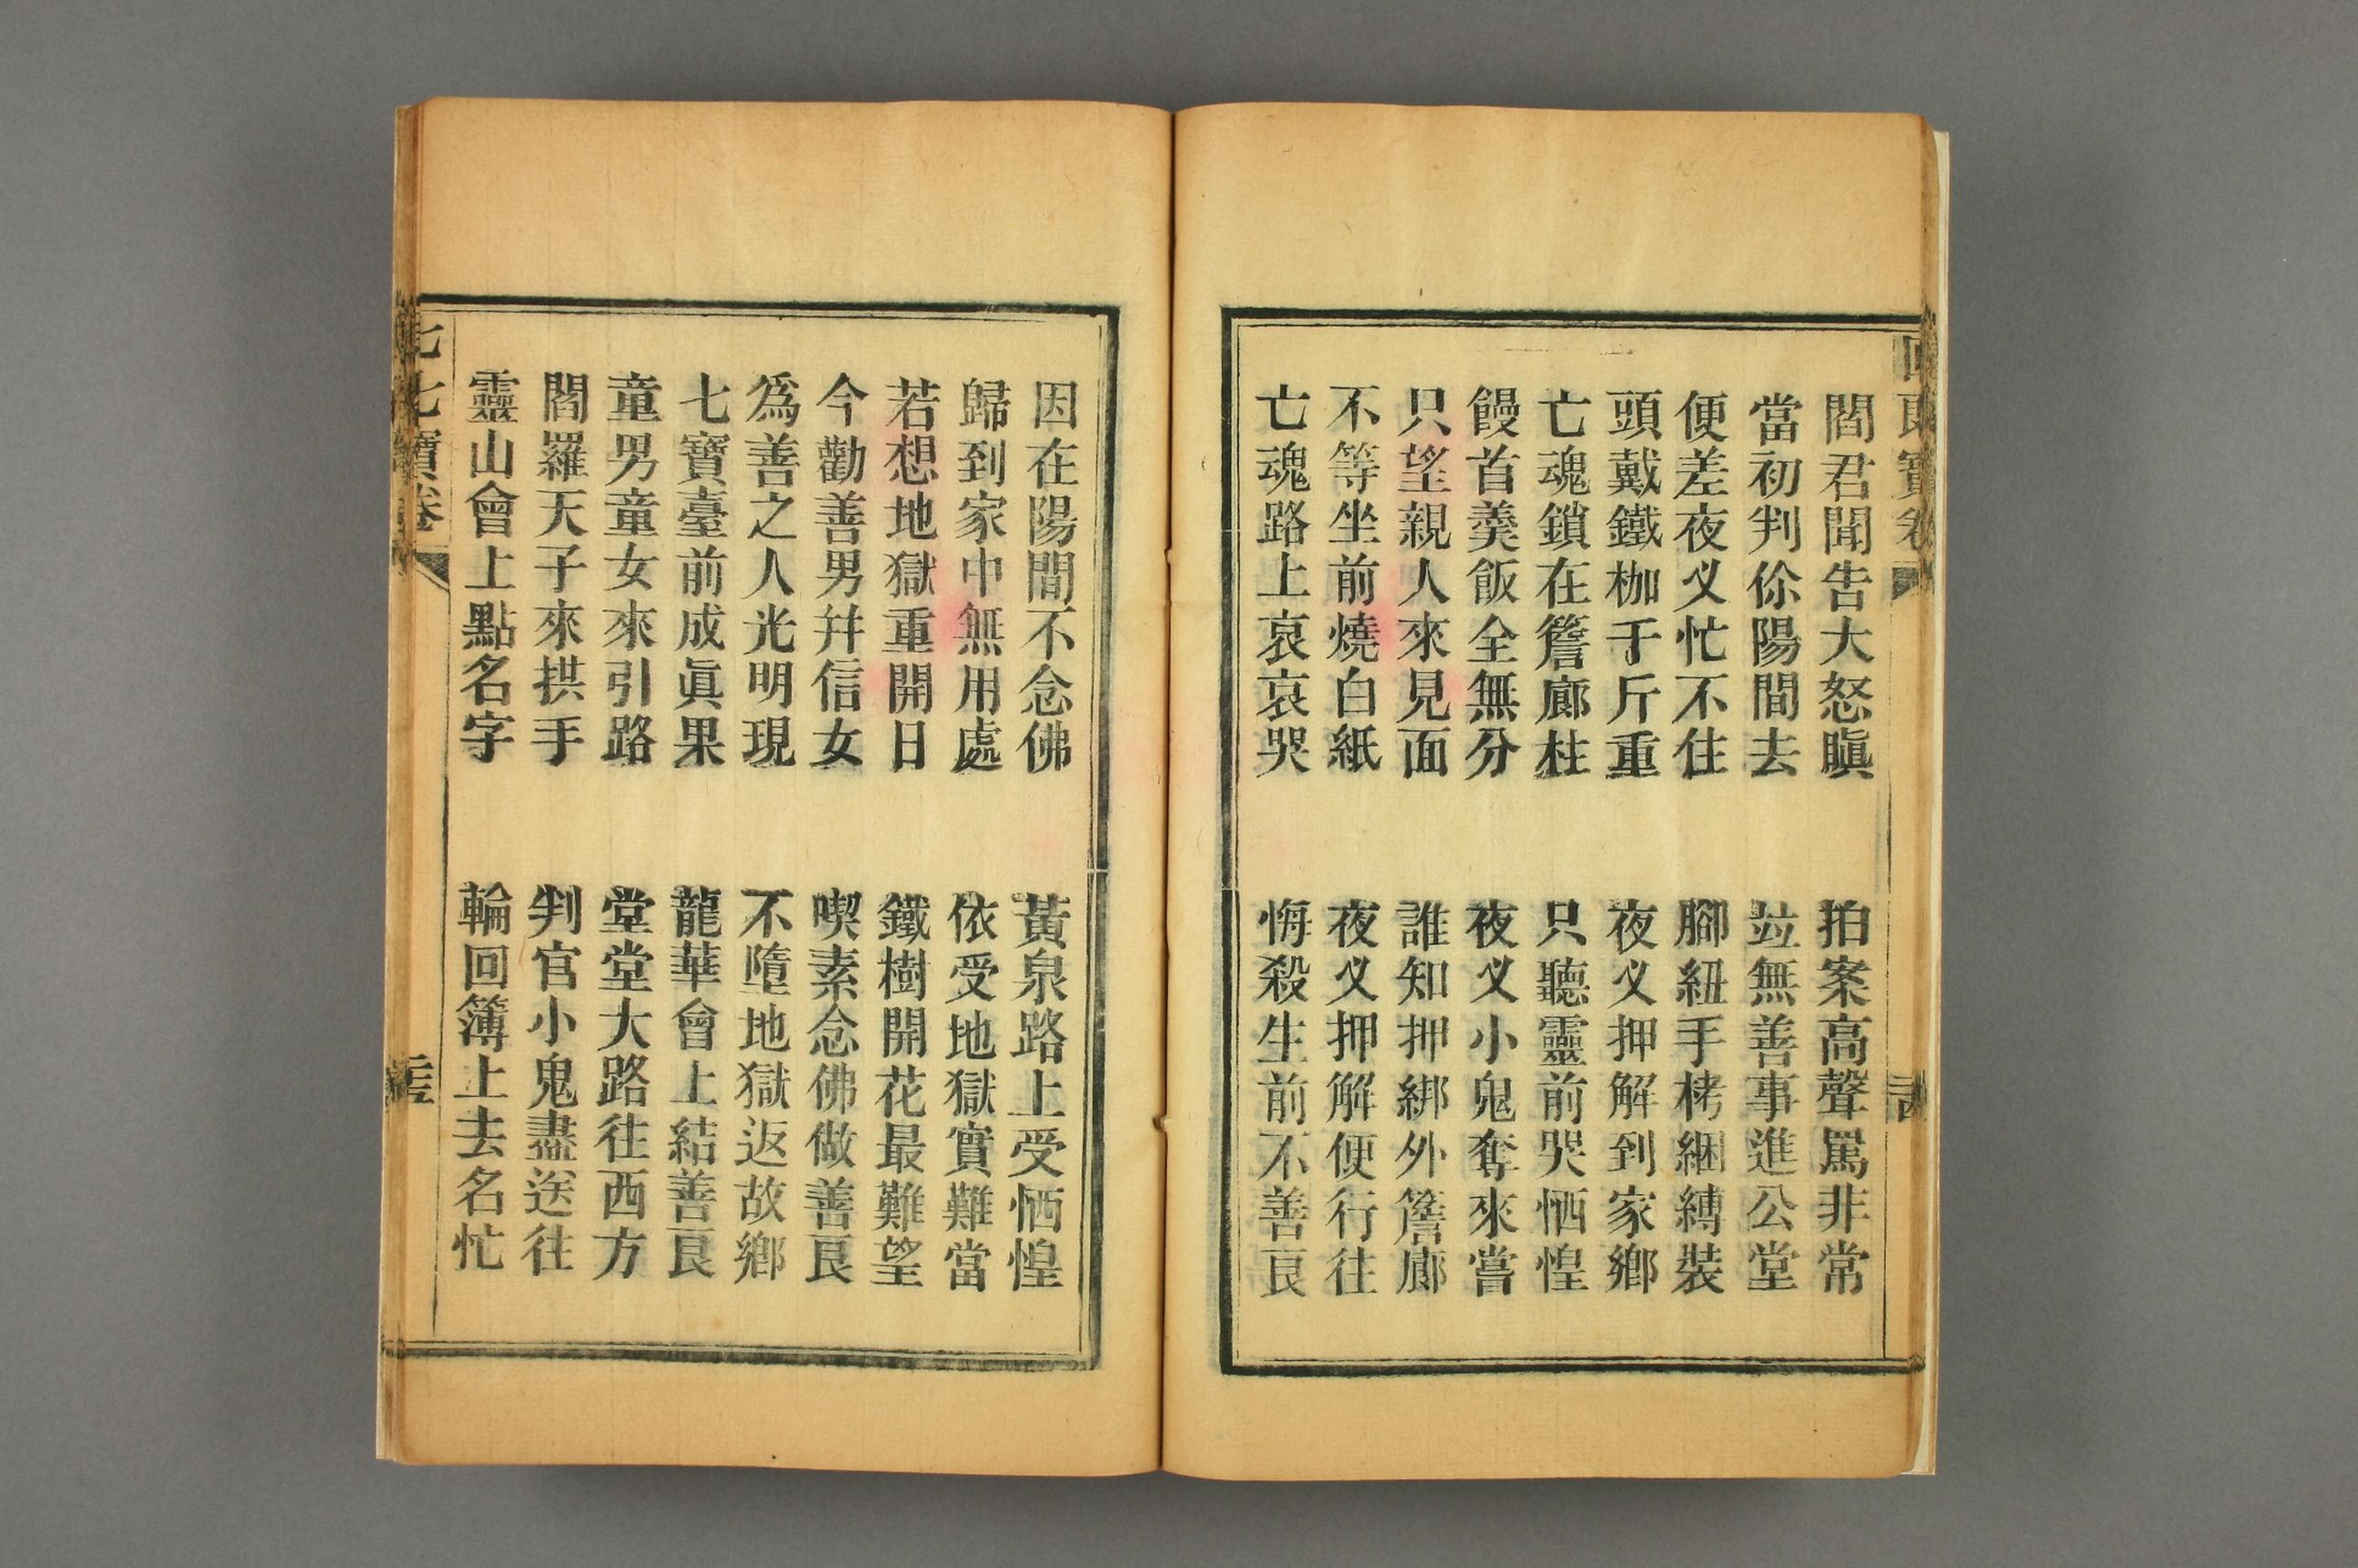 閻君聞告大怒瞋　拍案高聲罵非常
當初判你陽間去　竝無善事進公堂
便差夜乂忙不住　腳紐手栲綑縛裝
頭戴鐵枷千斤重　夜乂押解到家鄉
亡魂鎖在簷廊柱　只聽靈前哭恓惶
饅首羮飯全無分　夜乂小鬼奪來嘗
只望親人來見面　誰知押綁外簷廊
不等坐前燒白紙　夜乂押解便行往
亡魂路上哀哀哭　悔殺生前不善良
因在陽間不念佛　黃泉路上受恓惶
歸到家中無用處　依受地獄實難當
若想地獄重開日　鐵樹開花最難望
今勸善男幷信女　喫素念佛做善良
爲善之人光明現　不墮地獄返故鄉
七寶臺前成眞果　龍華會上結善良
童男童女來引路　堂堂大路往西方
閻羅天子來拱手　判官小鬼盡送往
靈山會上點名字　輪回簿上去名忙
七七寶卷